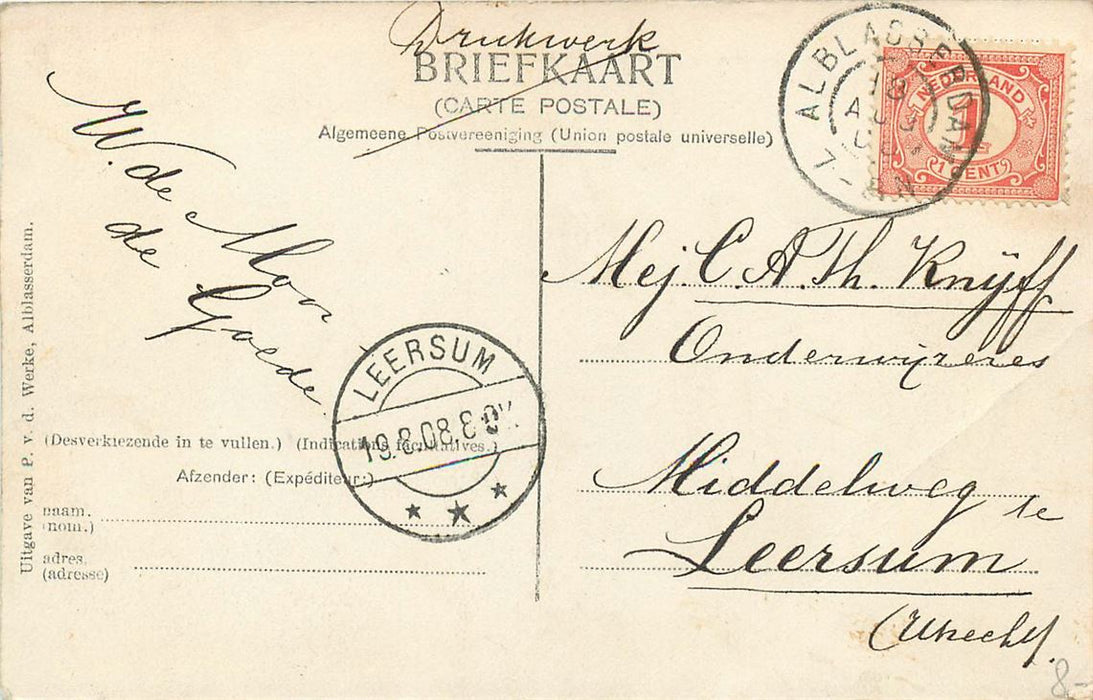 Drukwerk
BRIEFKAART
(CARTE POSTALE)
Algemeene Postvereeniging (Union postale universelle)
ALBLASSERDAM
18
AUG
7-8N
NEDERLAND
1
1 CENT
W. de Mon
de Goede
Mej. C. A. Th. Knijff
Onderwijzeres
Middelweg te
Leersum
(Utrecht).
LEERSUM
19.8.08.
(Desverkiezende in te vullen.) (Indications facultatives.)
Afzender: (Expéditeur:)
naam.
(nom.)
adres.
(adresse)
Uitgave van P. v. d. Werke, Alblasserdam.
8-